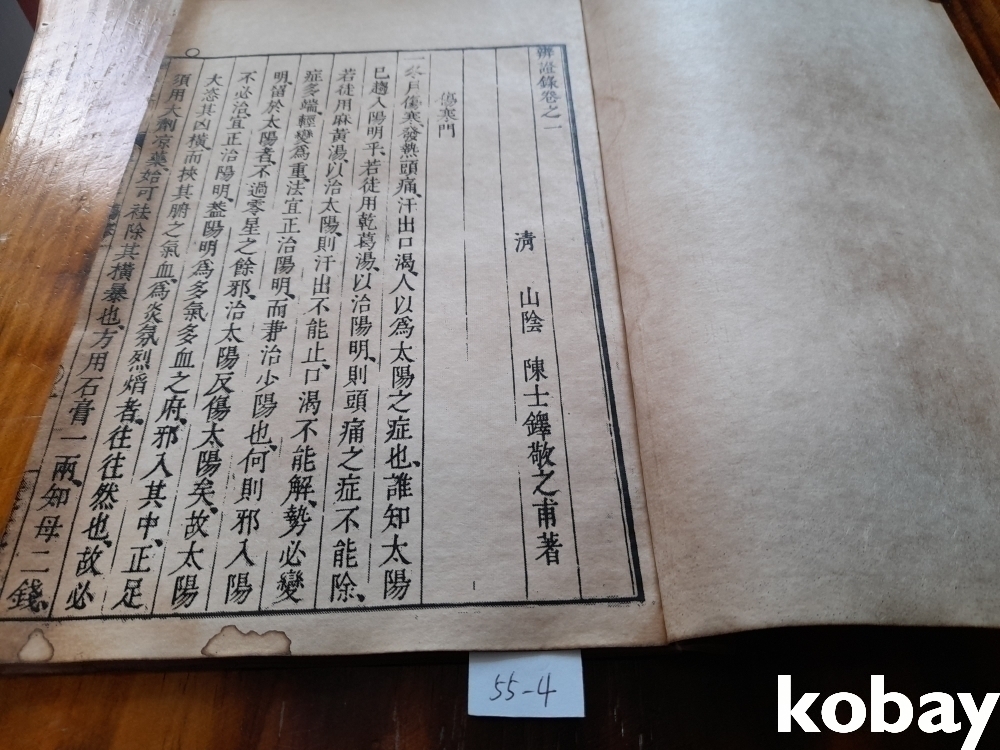 辨證錄卷之一
清 山陰 陳士鐸敬之甫著
傷寒門
一冬月傷寒、發熱頭痛、汗出口渴、人以爲太陽之症也、誰知太陽
已趨入陽明乎、若徒用乾葛湯、以治陽明、則頭痛之症不能除、
若徒用麻黃湯、以治太陽、則汗出不能止、口渴不能解、勢必變
症多端、輕變爲重、法宜正治陽明、而兼治少陽也、何則邪入陽
明、留於太陽者、不過零星之餘邪、治太陽反傷太陽矣、故太陽
不必治、宜正治陽明、蓋陽明爲多氣多血之府、邪入其中、正足
大恣其凶橫、而挾其腑之氣血、爲炎氛烈熖者、往往然也、故必
須用大劑凉藥、始可祛除其橫暴也、方用石膏一兩、知母二錢、
55-4
kobay